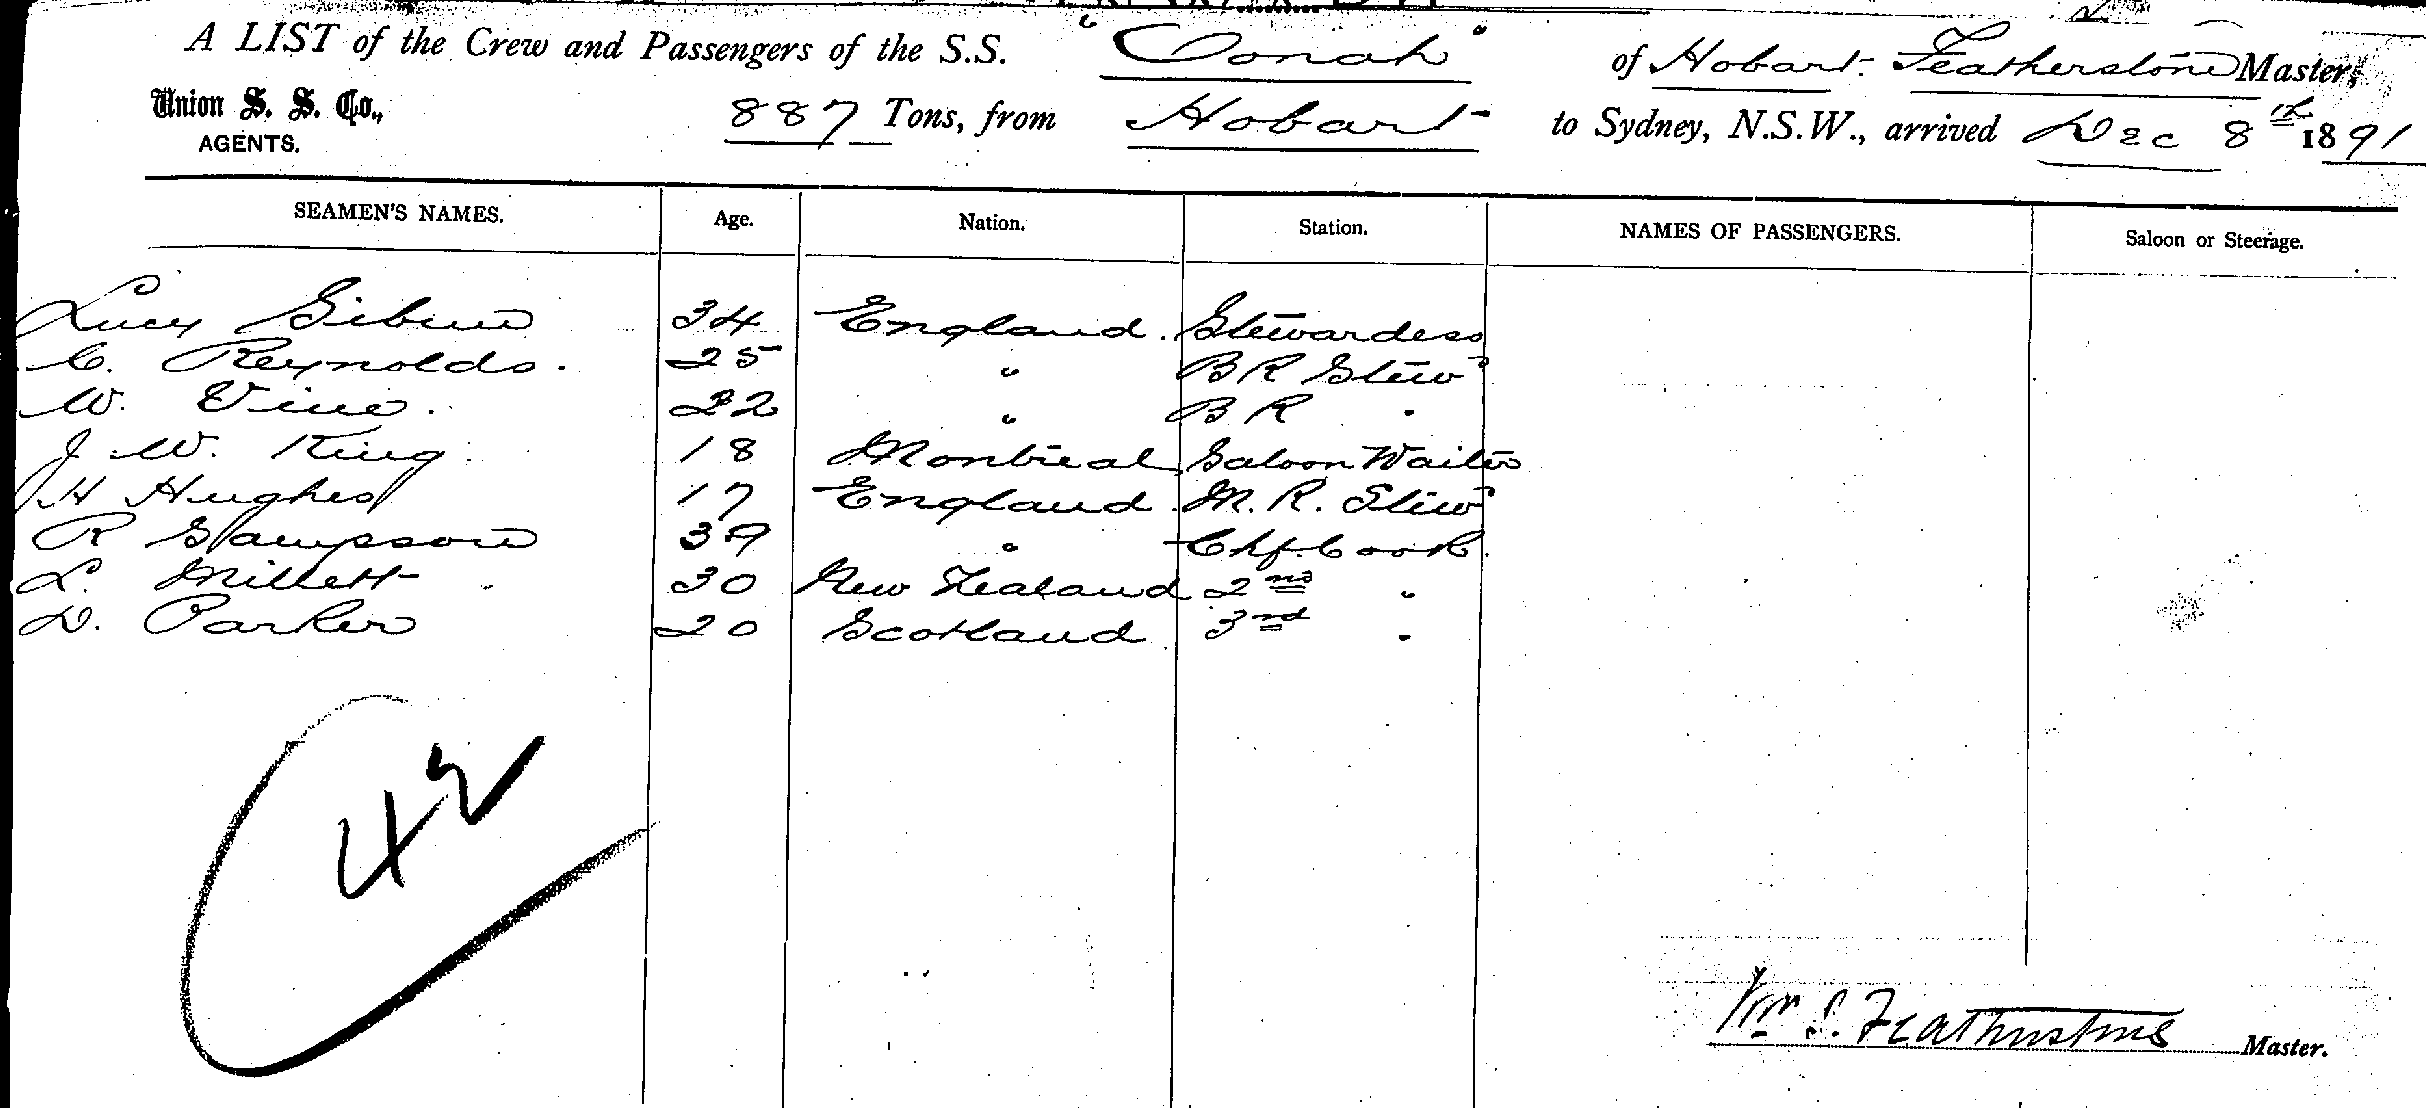 A LIST of the Crew and Passengers of the S.S. "Oonah" of Hobart. Featherstone Master,
Union S. S. Co., 887 Tons, from Hobart to Sydney, N.S.W., arrived Dec 8th 1891
AGENTS.
SEAMEN'S NAMES. Age. Nation. Station. NAMES OF PASSENGERS. Saloon or Steerage.
Lucy 34 England. Stewardess
C. Reynolds. 25 " B R Stewd
W. Vine. 22 " B R "
J. W. King. 18 Montreal Saloon Waiter
H Hughes 17 England M. R. Stewd
R Sampson 39 " Chf. Cook.
L. Millett 30 New Zealand 2nd "
D. Parker 20 Scotland 3rd "
42
Wm S. Featherstone Master.